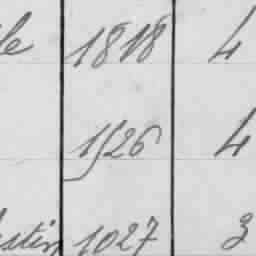 le 1818 4
1526 4
stin 1027 3